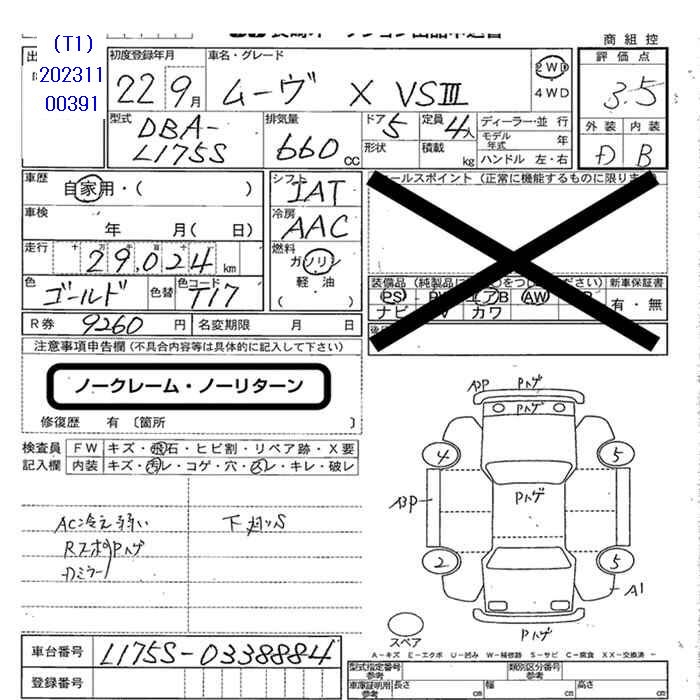 (T1)
202311
00391
商組控
初度登録年月
22 9月
車名・グレード
ムーヴ X VSⅢ
2WD
4WD
評価点
3.5
型式
DBA-
L175S
排気量
660cc
ドア
5
形状
定員
4人
積載
kg
ディーラー・並行
モデル年式 年
ハンドル 左・右
外装 内装
D B
車歴
自家用・( )
車検
年 月( 日)
走行
29,024km
色
ゴールド
色替
色コード
T17
シフト
IAT
冷房
AAC
燃料
ガソリン
軽油
セールスポイント (正常に機能するものに限りま
装備品 (純製品に つをつしください)
新車保証書
有・無
PS
エアB
AW
ナビ
カワ
R券 9260円
名変期限 月 日
注意事項申告欄 (不具合内容等は具体的に記入して下さい)
ノークレーム・ノーリターン
修復歴 有 〔箇所 〕
検査員
記入欄
FW キズ・飛石・ヒビ割・リペア跡・X要
内装 キズ・汚レ・コゲ・穴・スレ・キレ・破レ
AC冷え弱い
下廻りS
RスポPハゲ
Dミラー
A3P
Pハゲ
Pハゲ
4
5
A3P
Pハゲ
2
5
A1
Pハゲ
スペア
A-キズ E-エクボ U-凹み W-補修跡 S-サビ C-腐食 XX-交換済
車台番号
L175S-0338884
登録番号
型式指定番号
参考
類別区分番号
参考
車庫証明用
参考
長さ cm
幅 cm
高さ cm